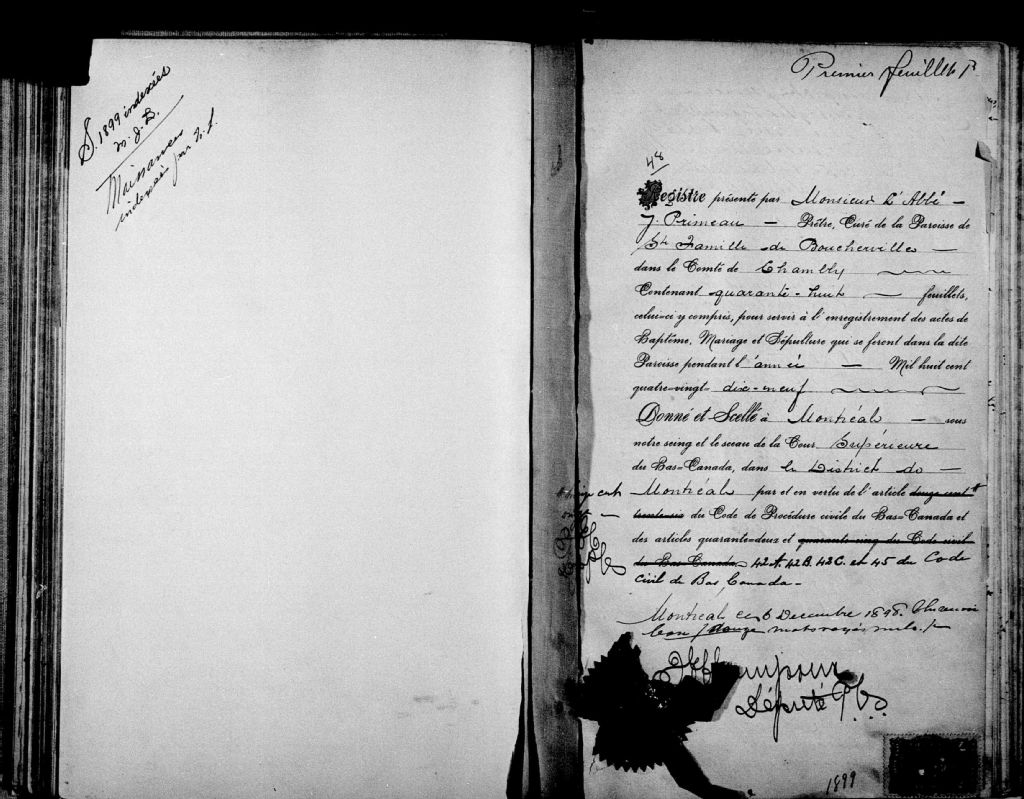 S. 1899 indexées
m. J. B.
Naissances
indexées par
Premier feuillet
48
Registre présenté par Monsieur L'Abbé –
J. Primeau – Prêtre, Curé de la Paroisse de
Ste Famille de Boucherville –
dans le Comté de Chambly
Contenant quarante-huit – feuillets,
celui-ci y compris, pour servir à l'enregistrement des actes de
Baptême, Mariage et Sépulture qui se feront dans la dite
Paroisse pendant l'année – Mil huit cent
quatre-vingt-dix-neuf
Donné et Scellé à Montréal – sous
notre seing et le sceau de la Cour Supérieure
du Bas-Canada, dans le District de –
Montréal par et en vertu de l'article douze cent
trente-six du Code de Procédure civile du Bas-Canada et
des articles quarante-deux et quarante-cinq du Code civil
du Bas Canada 42A. 42B. 42C. et 45 du Code
Civil de Bas Canada –
Montréal ce 6 Decembre 1898.
bon douze mots rayés nuls
Député
1899